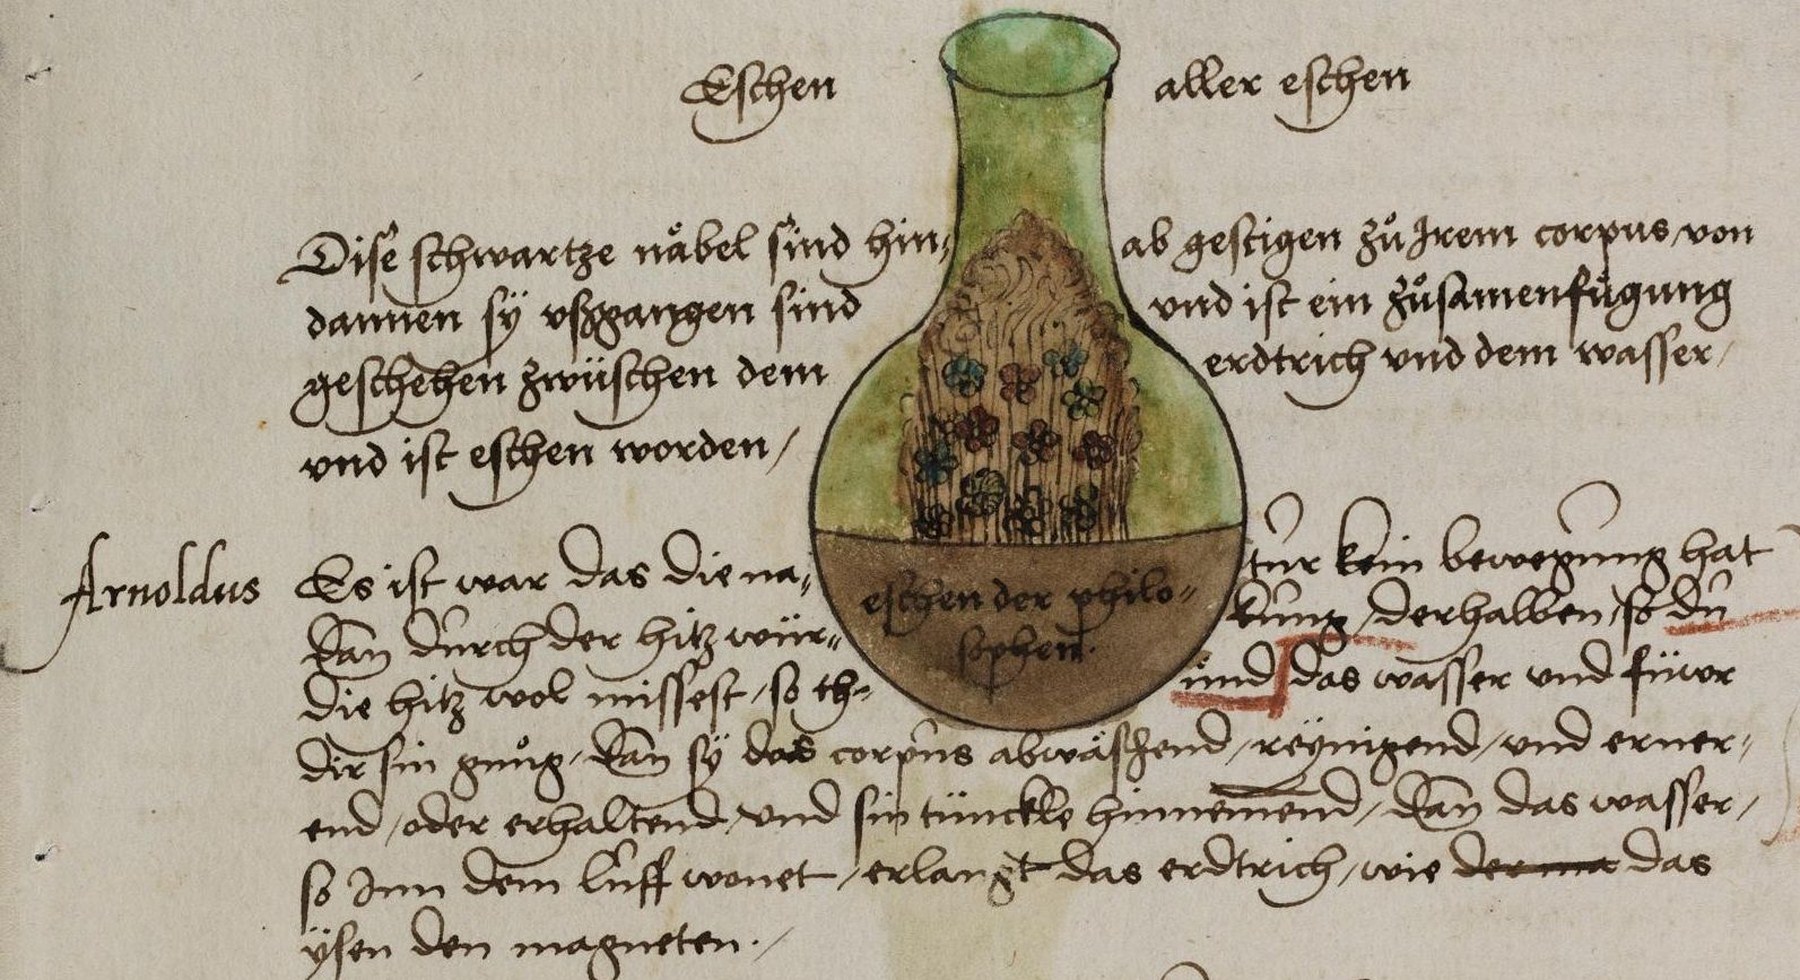 Eschen aller eschen
Dise schwartze nåbel sind hin= ab gestigen zů Irem corpus / von
dannen sÿ vßgangen sind vnd ist ein zůsamenfügung
geschehen zwüschen dem erdtrich vnd dem wasser /
vnd ist eschen worden /
Arnoldus
Es ist war das die na= tur kein bewegung hat
dan durch der hitz wür= kung / derhalben / so du
die hitz wol missest / so th= und das wasser und füwr
dir sin gnůg / dan sÿ das corpus abwäschend / reÿnigend / und erner=
end / oder erhaltend / und sin tünckle hinnemend / dan das wasser /
so Inn dem lufft wonet / erlangt das erdtrich / wie der ma das
ÿsen den magneten ./
eschen der philo=
sophen.